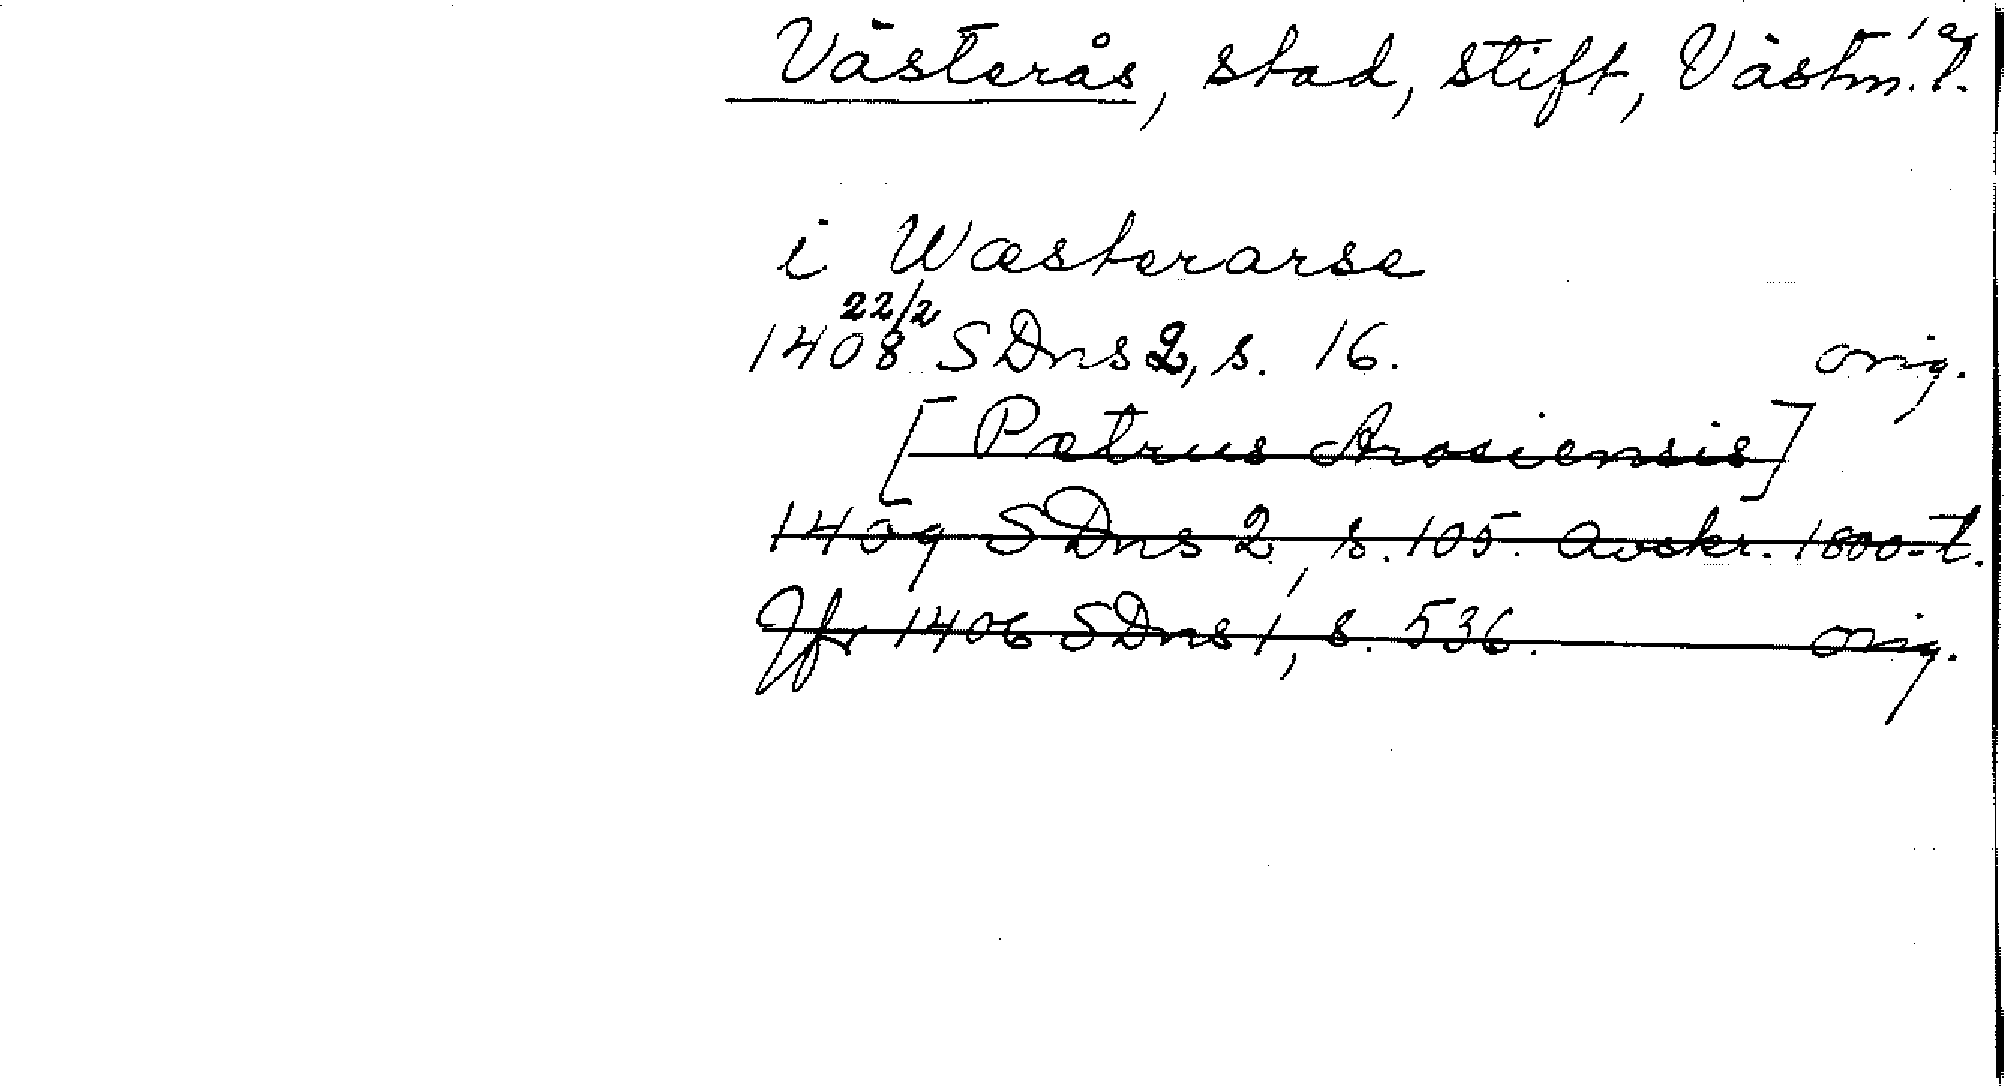 Västerås, stad, stift, Västm. l.
i Wæsterarse
22/2
1408 SDns 2, s. 16. orig.
[Petrus Arosiensis]
1409 SDns 2, s. 105. Avskr. 1800-t.
Jfr 1406 SDns 1, s. 536. orig.